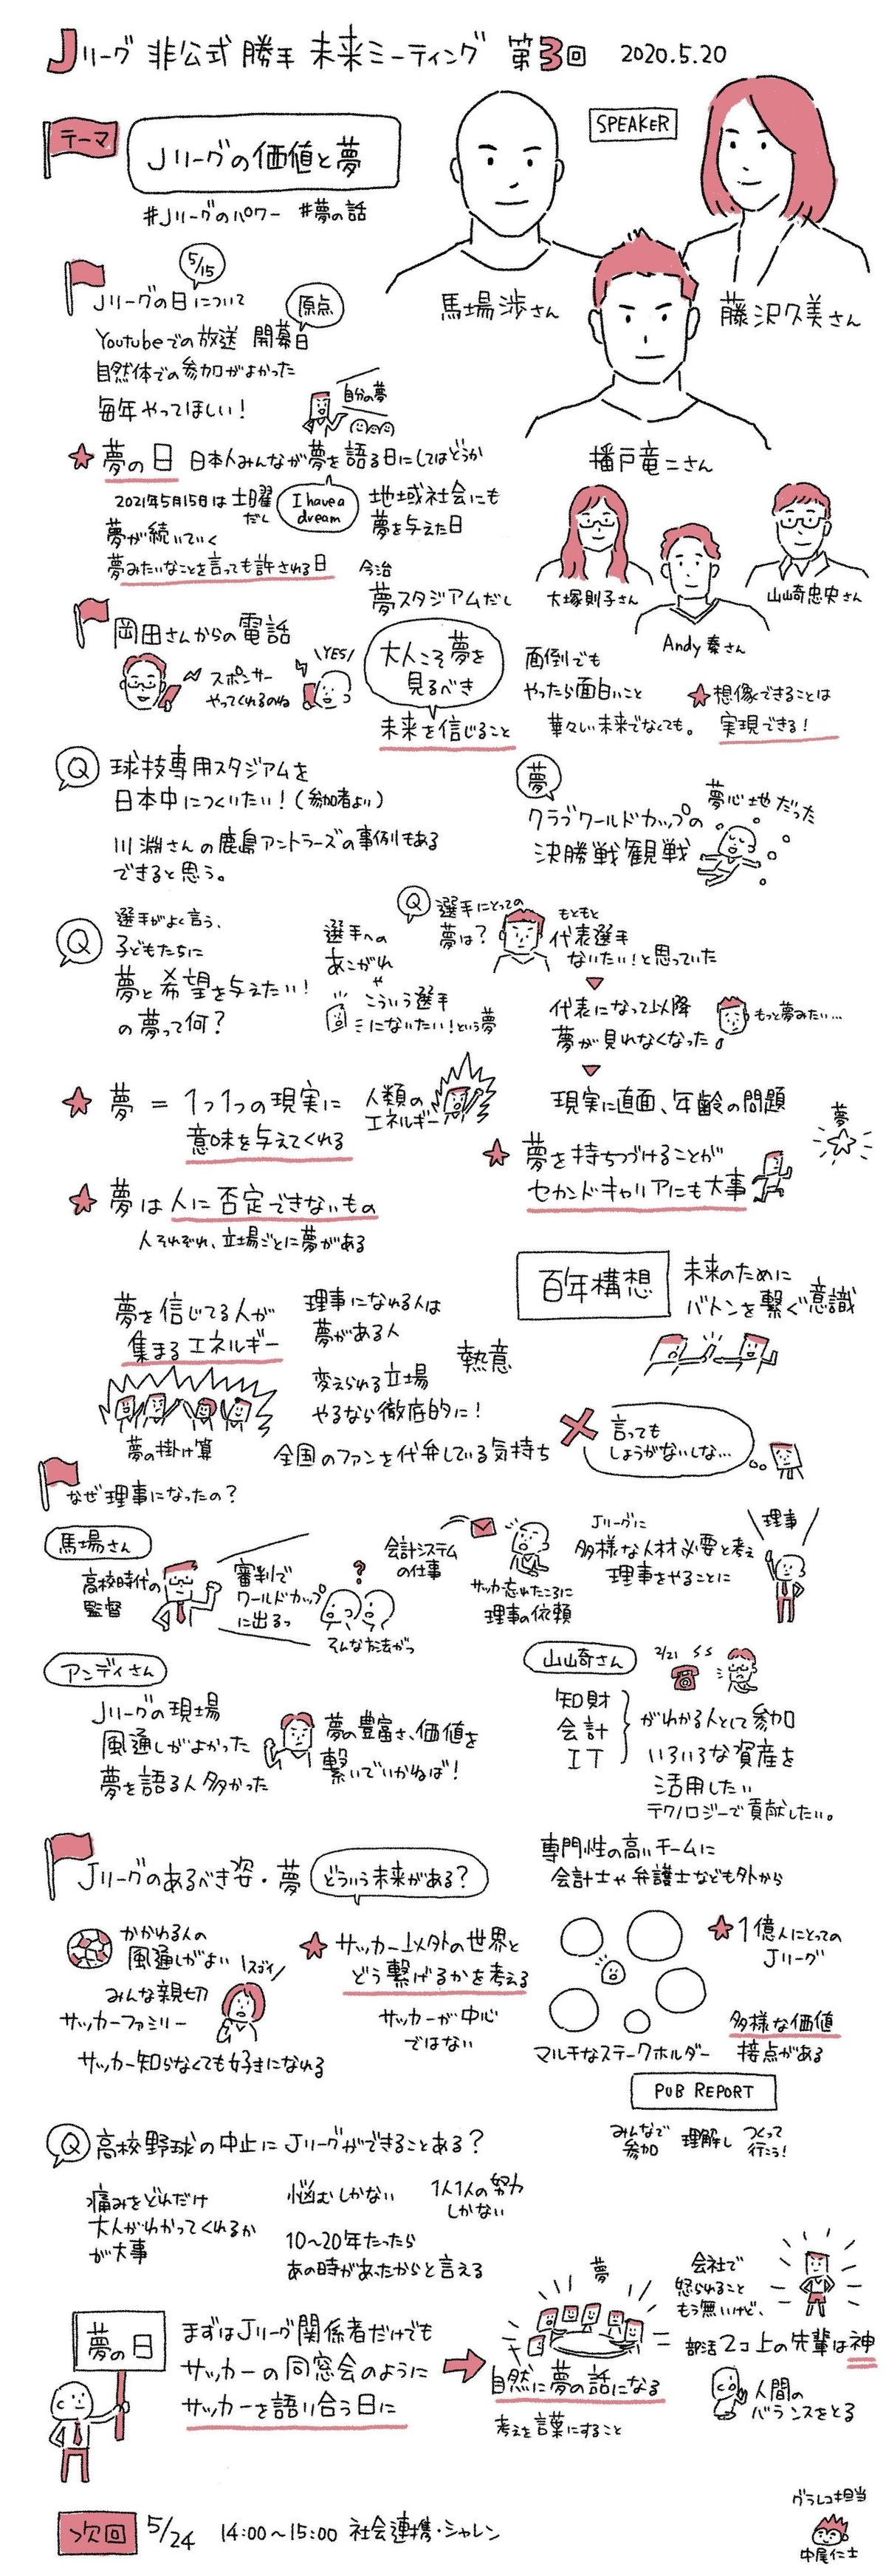 Jリーグ 非公式 勝手 未来ミーティング 第3回 2020.5.20
テーマ
Jリーグの価値と夢
#Jリーグのパワー #夢の話
SPEAKER
馬場渉さん
藤沢久美さん
播戸竜二さん
大塚則子さん
Andy秦さん
山崎忠史さん
5/15
Jリーグの日について
原点
Youtubeでの放送 開幕日
自然体での参加がよかった
毎年やってほしい!
自分の夢
夢の日 日本人みんなが夢を語る日にしてはどうか
2021年5月15日は土曜
だし
I have a
dream
地域社会にも
夢を与えた日
夢が続いていく
夢みたいなことを言っても許される日
今治
夢スタジアムだし
岡田さんからの電話
スポンサー
やってくれるのね
YES
大人こそ夢を
見るべき
未来を信じること
面倒でも
やったら面白いこと
華々しい未来でなくても。
想像できることは
実現できる!
Q
球技専用スタジアムを
日本中につくりたい!(参加者より)
川淵さんの鹿島アントラーズの事例もある
できると思う。
夢
クラブワールドカップの
決勝戦観戦
夢心地だった
Q
選手がよく言う、
子どもたちに
夢と希望を与えたい!
の夢って何?
選手への
あこがれ
や
こういう選手
になりたい!という夢
Q
選手にとっての
夢は?
もともと
代表選手
なりたい!と思っていた
代表になって以降
夢が見れなくなった
もっと夢みたい…
現実に直面、年齢の問題
夢を持ちつづけることが
セカンドキャリアにも大事
夢
夢=1つ1つの現実に
意味を与えてくれる
人類の
エネルギー
夢は人に否定できないもの
人それぞれ、立場ごとに夢がある
百年構想
未来のために
バトンを繋ぐ意識
夢を信じてる人が
集まるエネルギー
夢の掛け算
理事になれる人は
夢がある人
変えられる立場
やるなら徹底的に!
熱意
全国のファンを代弁している気持ち
言っても
しょうがないしな…
なぜ理事になったの?
馬場さん
高校時代の
監督
審判で
ワールドカップ
に出るっ
?
そんな方法がっ
会計システム
の仕事
サッカー忘れたころに
理事の依頼
Jリーグに
多様な人材必要と考え
理事をやることに
理事
アンディさん
Jリーグの現場
風通しがよかった
夢を語る人多かった
夢の豊富さ、価値を
繋いでいかねば!
山崎さん
2/21
知財
会計
IT
がわかる人として参加
いろいろな資産を
活用したい
テクノロジーで貢献したい。
専門性の高いチームに
会計士や弁護士なども外から
Jリーグのあるべき姿・夢
どういう未来がある?
かかわる人の
風通しがよい
スゴイ
みんな親切
サッカーファミリー
サッカー知らなくても好きになれる
サッカー以外の世界と
どう繋げるかを考える
サッカーが中心
ではない
マルチなステークホルダー
1億人にとっての
Jリーグ
多様な価値
接点がある
PUB REPORT
みんなで
参加
理解し
つくって
行こう!
Q
高校野球の中止にJリーグができることある?
痛みをどれだけ
大人がわかってくれるか
が大事
悩むしかない
1人1人の努力
しかない
10〜20年たったら
あの時があったからと言える
夢の日
まずはJリーグ関係者だけでも
サッカーの同窓会のように
サッカーを語り合う日に
夢
自然に夢の話になる
考えを言葉にすること
=
会社で
怒られること
もう無いけど、
部活2コ上の先輩は神
人間の
バランスをとる
次回
5/24 14:00〜15:00 社会連携・シャレン
グラレコ担当
中尾仁士